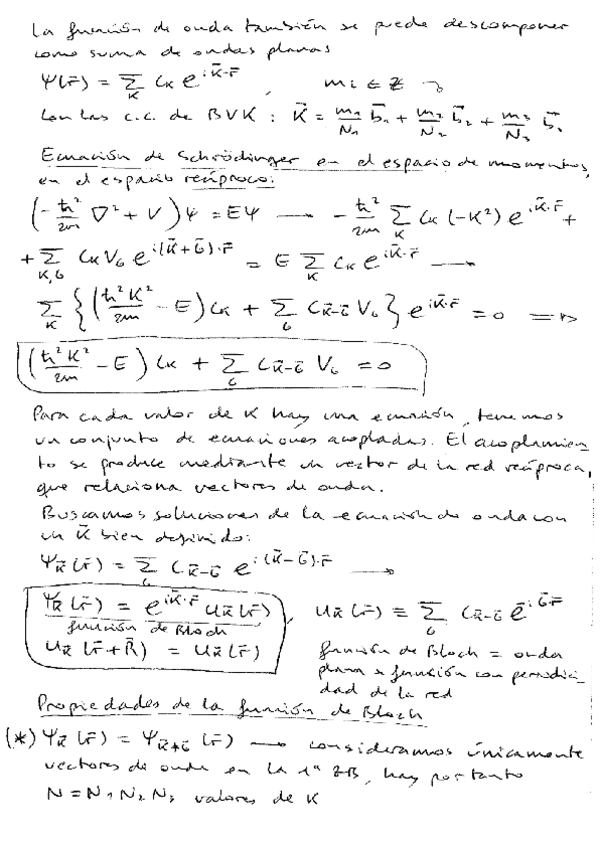 La función de onda también se puede descomponer
como suma de ondas planas
Ψ(r̄) = Σ_K C_K e^{iK̄·r̄} , m_i ∈ Z
Con las c.c. de BVK : K̄ = m₁/N₁ b̄₁ + m₂/N₂ b̄₂ + m₃/N₃ b̄₃
Ecuación de Schrödinger en el espacio de momentos,
en el espacio recíproco:
(-ħ²/2m ∇² + V)Ψ = EΨ → -ħ²/2m Σ_K C_K (-K²) e^{iK̄·r̄} +
+ Σ_{K,G} C_K V_G e^{i(K̄+Ḡ)·r̄} = E Σ_K C_K e^{iK̄·r̄} →
Σ_K {(ħ²K²/2m - E) C_K + Σ_G C_{K̄-Ḡ} V_G} e^{iK̄·r̄} = 0 ⇒
(ħ²K²/2m - E) C_K + Σ_G C_{K̄-Ḡ} V_G = 0
Para cada valor de K hay una ecuación, tenemos
un conjunto de ecuaciones acopladas. El acoplamien
to se produce mediante un vector de la red recíproca,
que relaciona vectores de onda.
Buscamos soluciones de la ecuación de onda con
un K̄ bien definido:
Ψ_K̄(r̄) = Σ_G C_{K̄-Ḡ} e^{i(K̄-Ḡ)·r̄} →
Ψ_K̄(r̄) = e^{iK̄·r̄} U_K̄(r̄) , U_K̄(r̄) ≡ Σ_G C_{K̄-Ḡ} e^{-iḠ·r̄}
función de Bloch
U_K̄(r̄+R̄) = U_K̄(r̄)
función de Bloch = onda
plana x función con periodici_
dad de la red
Propiedades de la función de Bloch
(*) Ψ_K̄(r̄) = Ψ_{K̄+Ḡ}(r̄) → consideramos únicamente
vectores de onda en la 1ª ZB, hay por tanto
N = N₁N₂N₃ valores de K